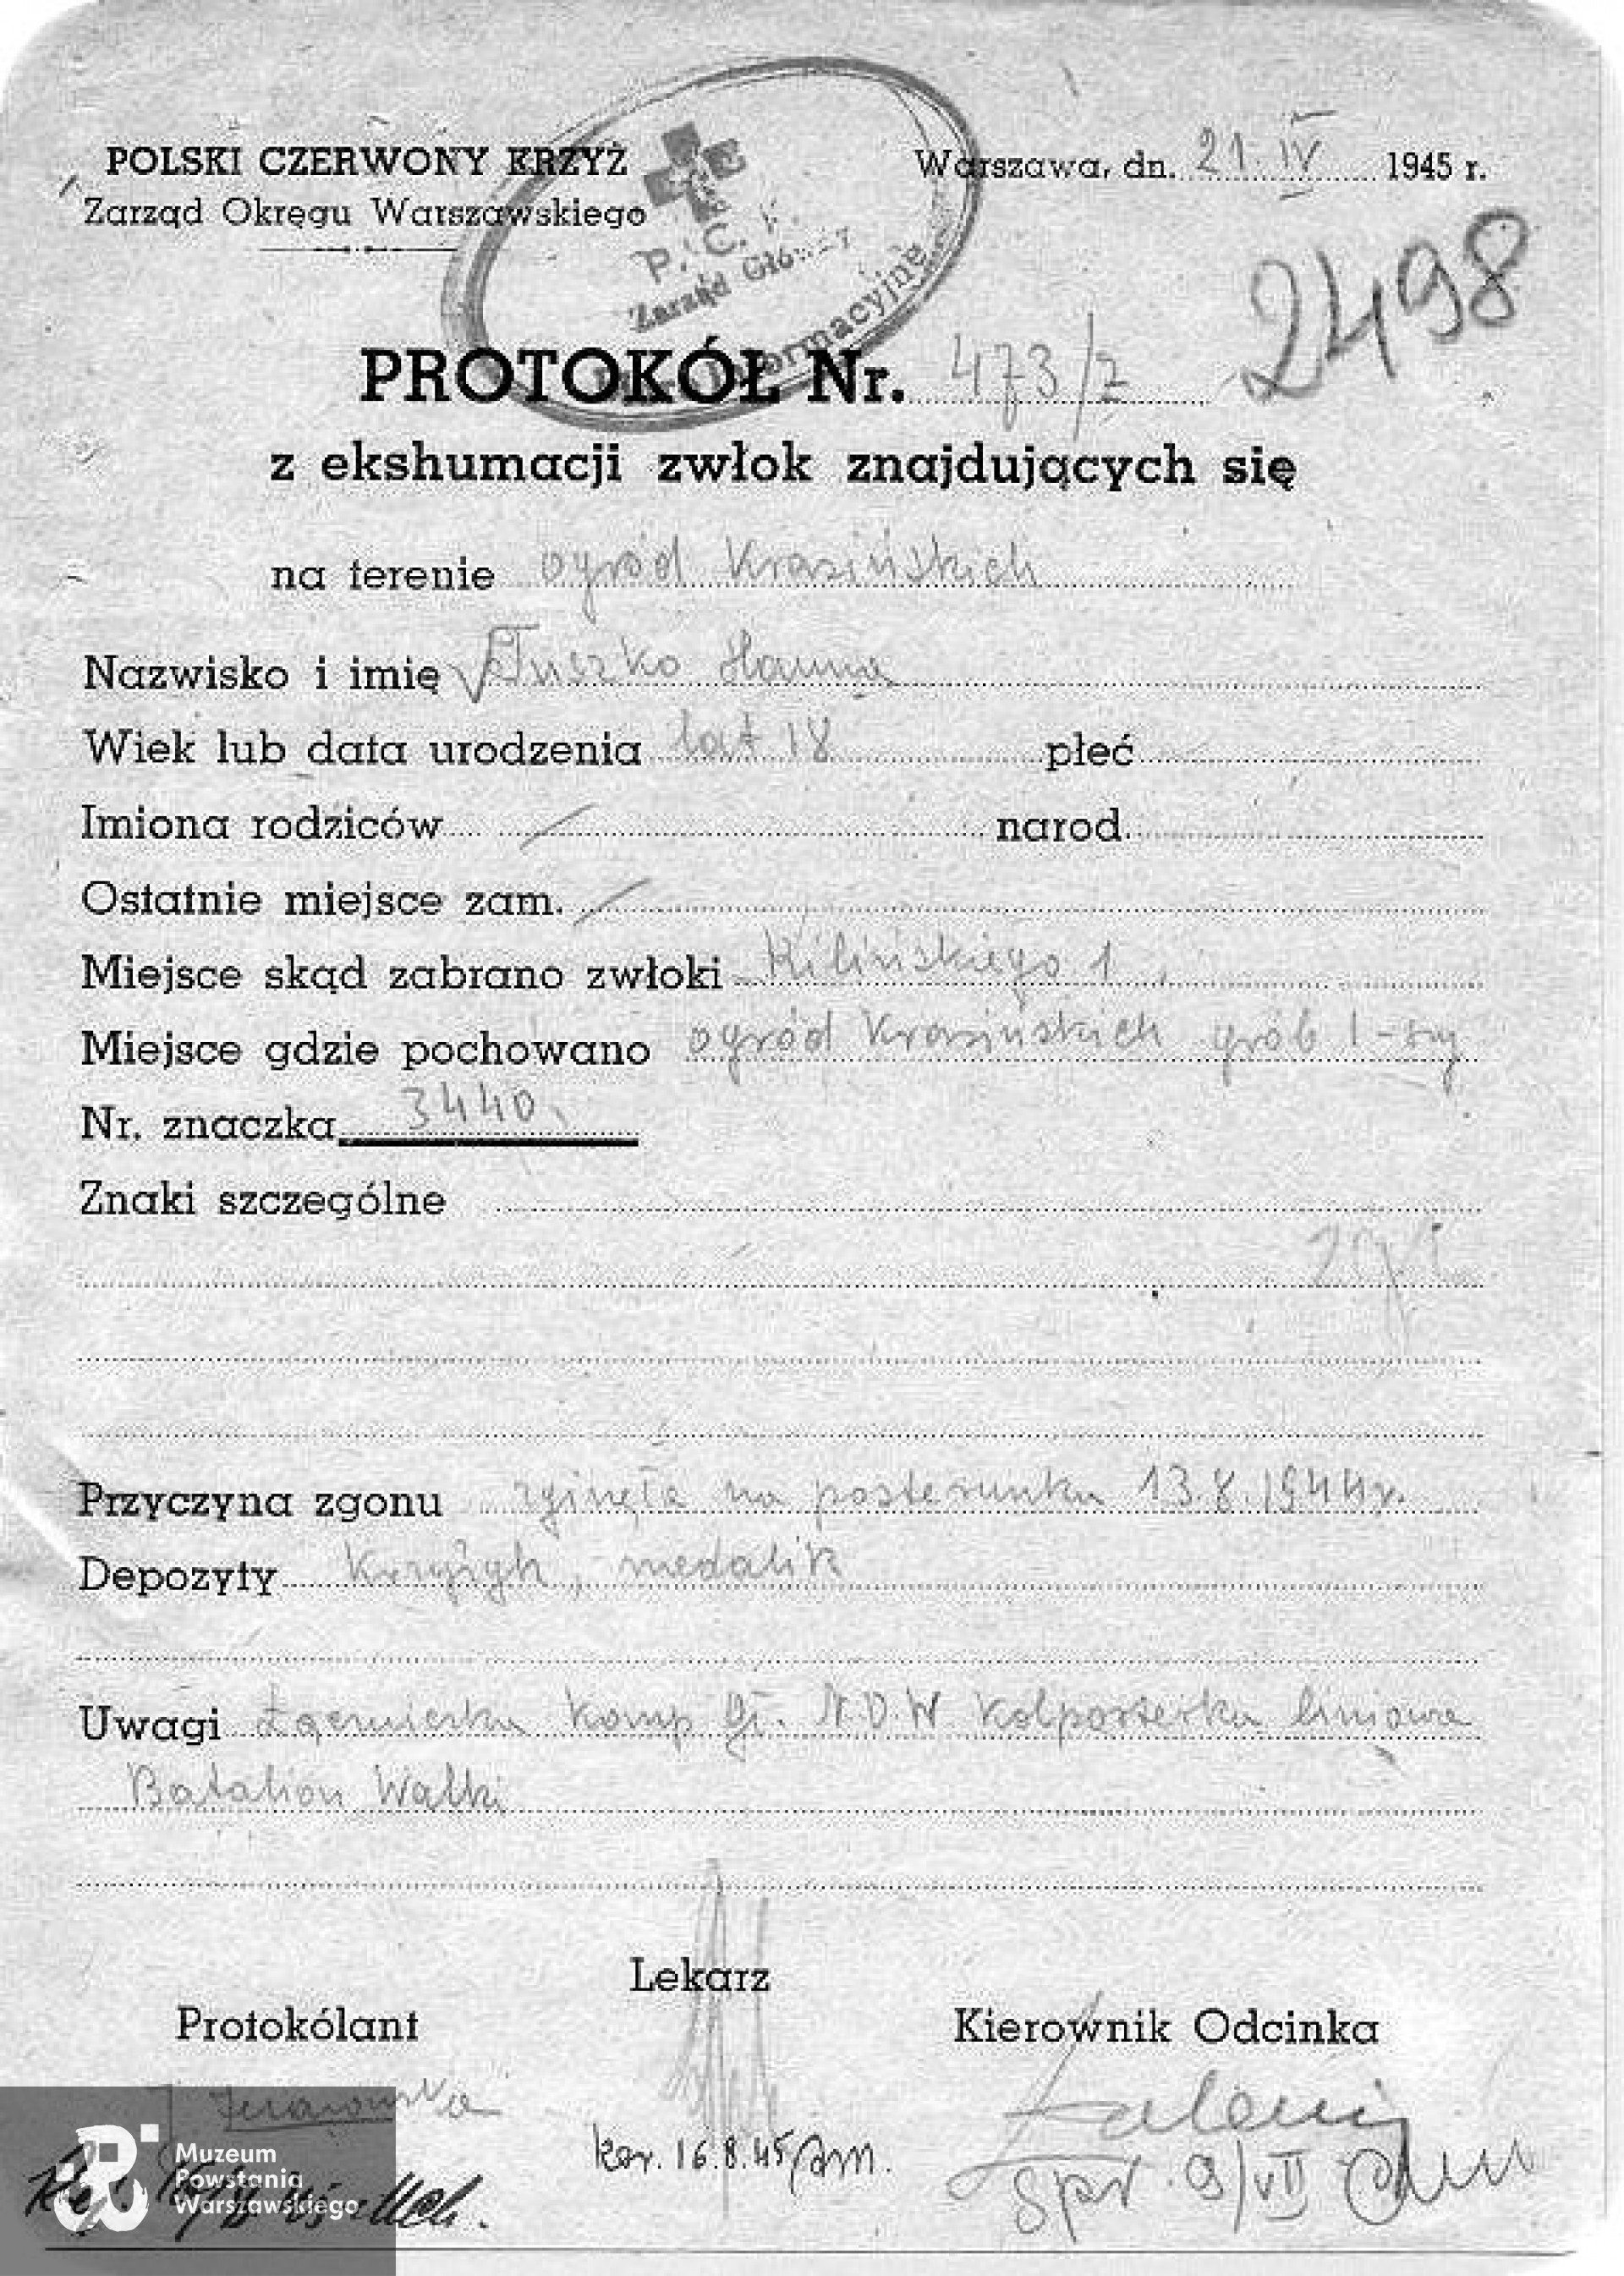 POLSKI CZERWONY KRZYŻ
Zarząd Okręgu Warszawskiego
P. C. K.
Zarząd Główny
Warszawa, dn. 21. IV 1945 r.
2498
PROTOKÓŁ Nr. 473/z
z ekshumacji zwłok znajdujących się
na terenie ogród Krasińskich
Nazwisko i imię Tuszko Hanna
Wiek lub data urodzenia lat 18 płeć
Imiona rodziców / narod.
Ostatnie miejsce zam. /
Miejsce skąd zabrano zwłoki Kilińskiego 1
Miejsce gdzie pochowano ogród Krasińskich grób 1-szy
Nr. znaczka 3440
Znaki szczególne
Przyczyna zgonu zginęła na posterunku 13.8.1944r.
Depozyty Krzyżyk, medalik
Uwagi Łączniczka Komp gł. K.O.W kolporterka liniowa
Batalion Walki
Lekarz
Protokólant
Kierownik Odcinka
kor. 16.8.45
Spr. 9/VII
Muzeum
Powstania
Warszawskiego